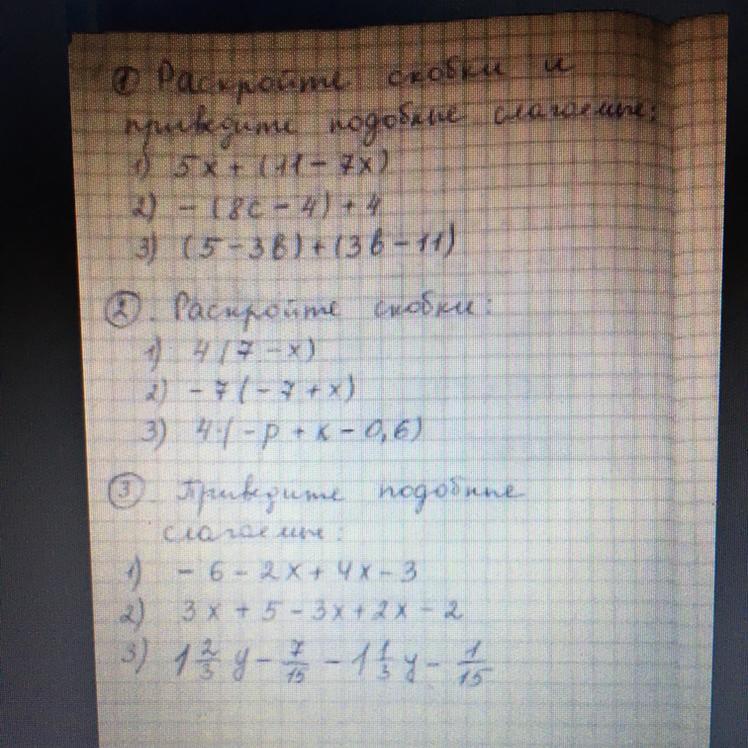 ① Раскройте скобки и
приведите подобные слагаемые:
1) 5x + (11 - 7x)
2) - (8c - 4) + 4
3) (5 - 3b) + (3b - 11)
②. Раскройте скобки:
1) 4 (7 - x)
2) - 7 ( - 7 + x)
3) 4·( - p + k - 0,6)
③. Приведите подобные
слагаемые:
1) - 6 - 2x + 4x - 3
2) 3x + 5 - 3x + 2x - 2
3) 1 2/3 y - 7/15 - 1 1/3 y - 1/15